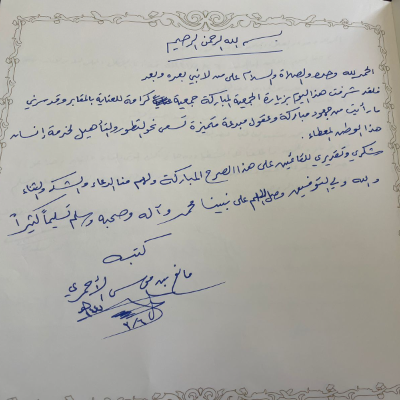 بسم الله الرحمن الرحيم
الحمد لله وحده والصلاة والسلام على من لا نبي بعده وبعد
فلقد شرفت هذا اليوم بزيارة الجمعية المباركة جمعية كرامة للعناية بالمقابر وقد سرني
ما رأيت من جهود مباركة وعقول مبدعة متميزة تسعى نحو التطور والتأهيل لخدمة إنسان
هذا الوطن المعطاء.
شكري وتقديري للقائمين على هذا الصرح المباركة ولهم منا الدعاء والشكر والثناء
والله ولي التوفيق وصل اللهم على نبينا محمد وآله وصحبه وسلم تسليماً كثيراً
كتبه
مانع بن موسى الأحمري